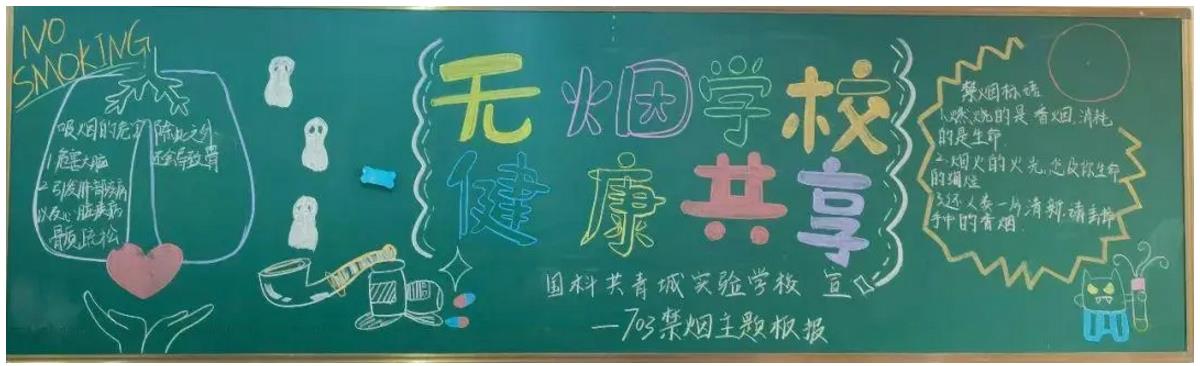 NO
SMOKING
吸烟的危害
1.危害大脑
2.引发肺部疾病
以及心脏疾病
骨质疏松
除此之外
还会导致骨
无烟学校
健康共享
国科共青城实验学校 宣
—703禁烟主题板报
禁烟标语
1.燃烧的是香烟,消耗
的是生命
2.烟火的火光,
3.还人类一片清新,请丢掉
手中的香烟.